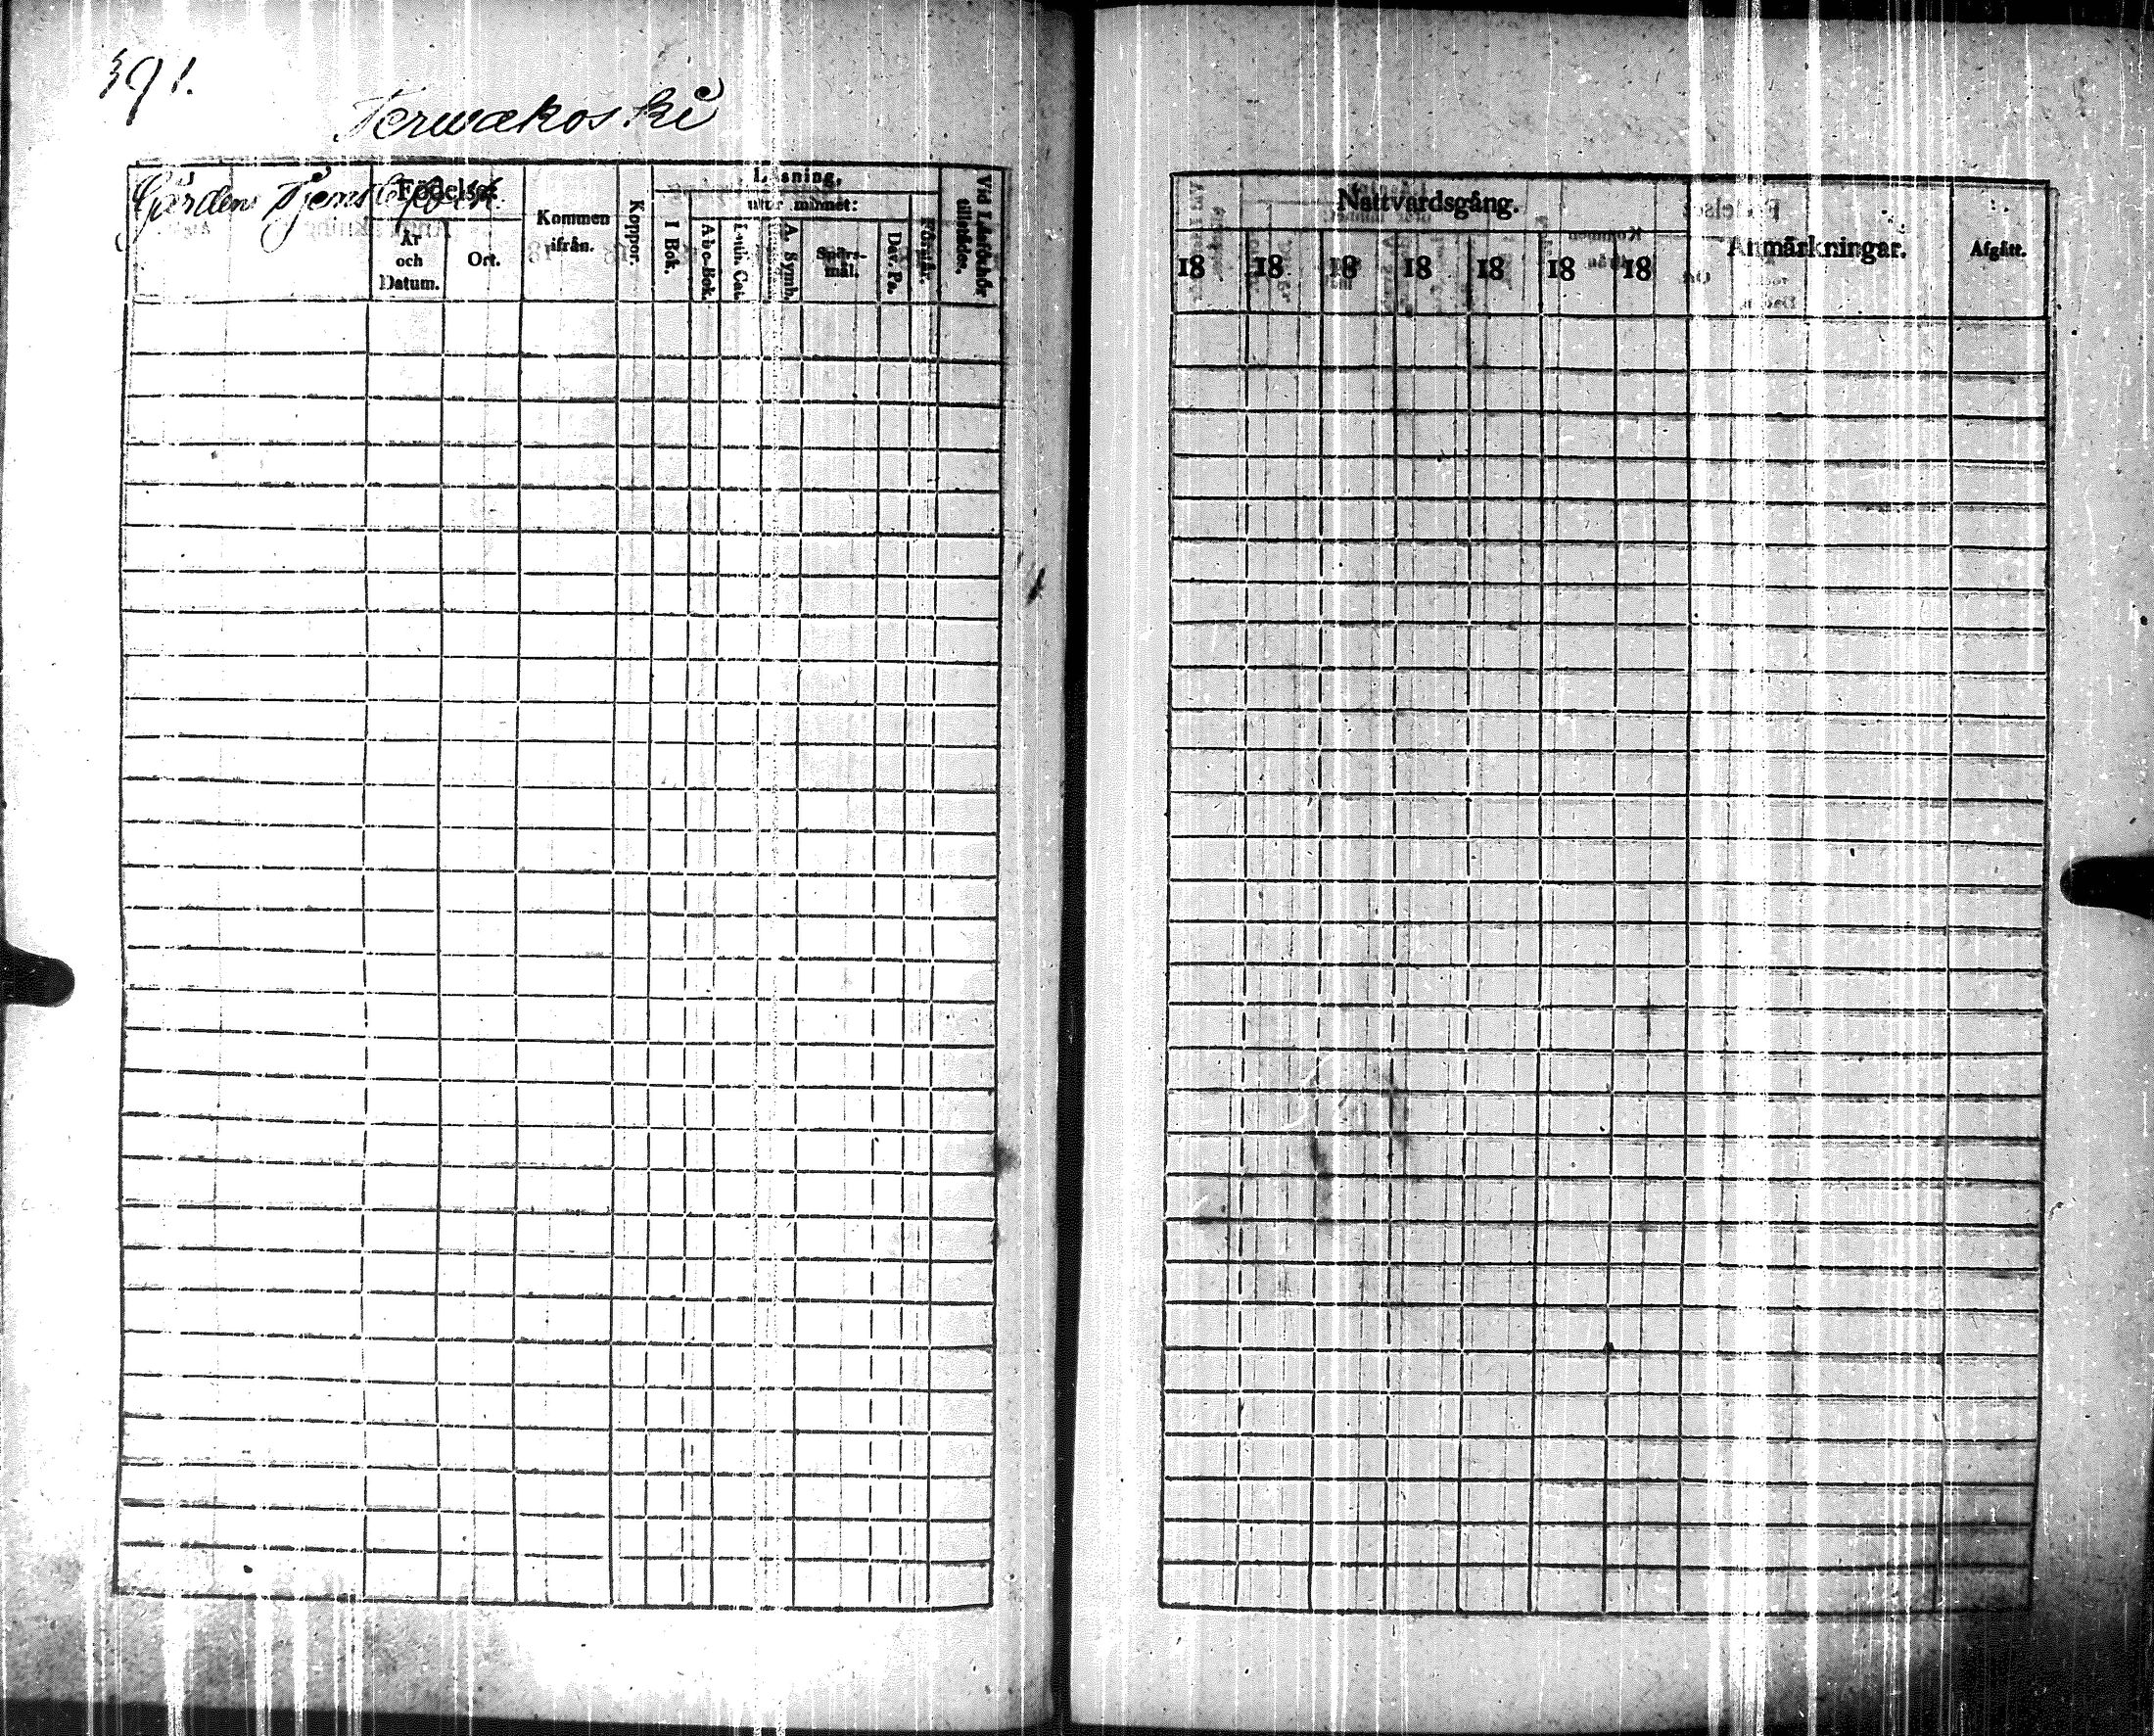 391.
Terwakoski
Gårdens tjenstefolk
Födelse
Läsning,
utur minnet:
År och Datum.
Ort.
Kommen ifrån.
Koppor.
I Bok.
Abc-Bok.
Luth. Cat.
A. Symb.
Spörsmål.
Dav. Ps.
Förstår.
Vid Läsförhör tillstädes.
Nattvardsgång.
18 18 18 18 18 18 18
Anmärkningar.
Afgått.